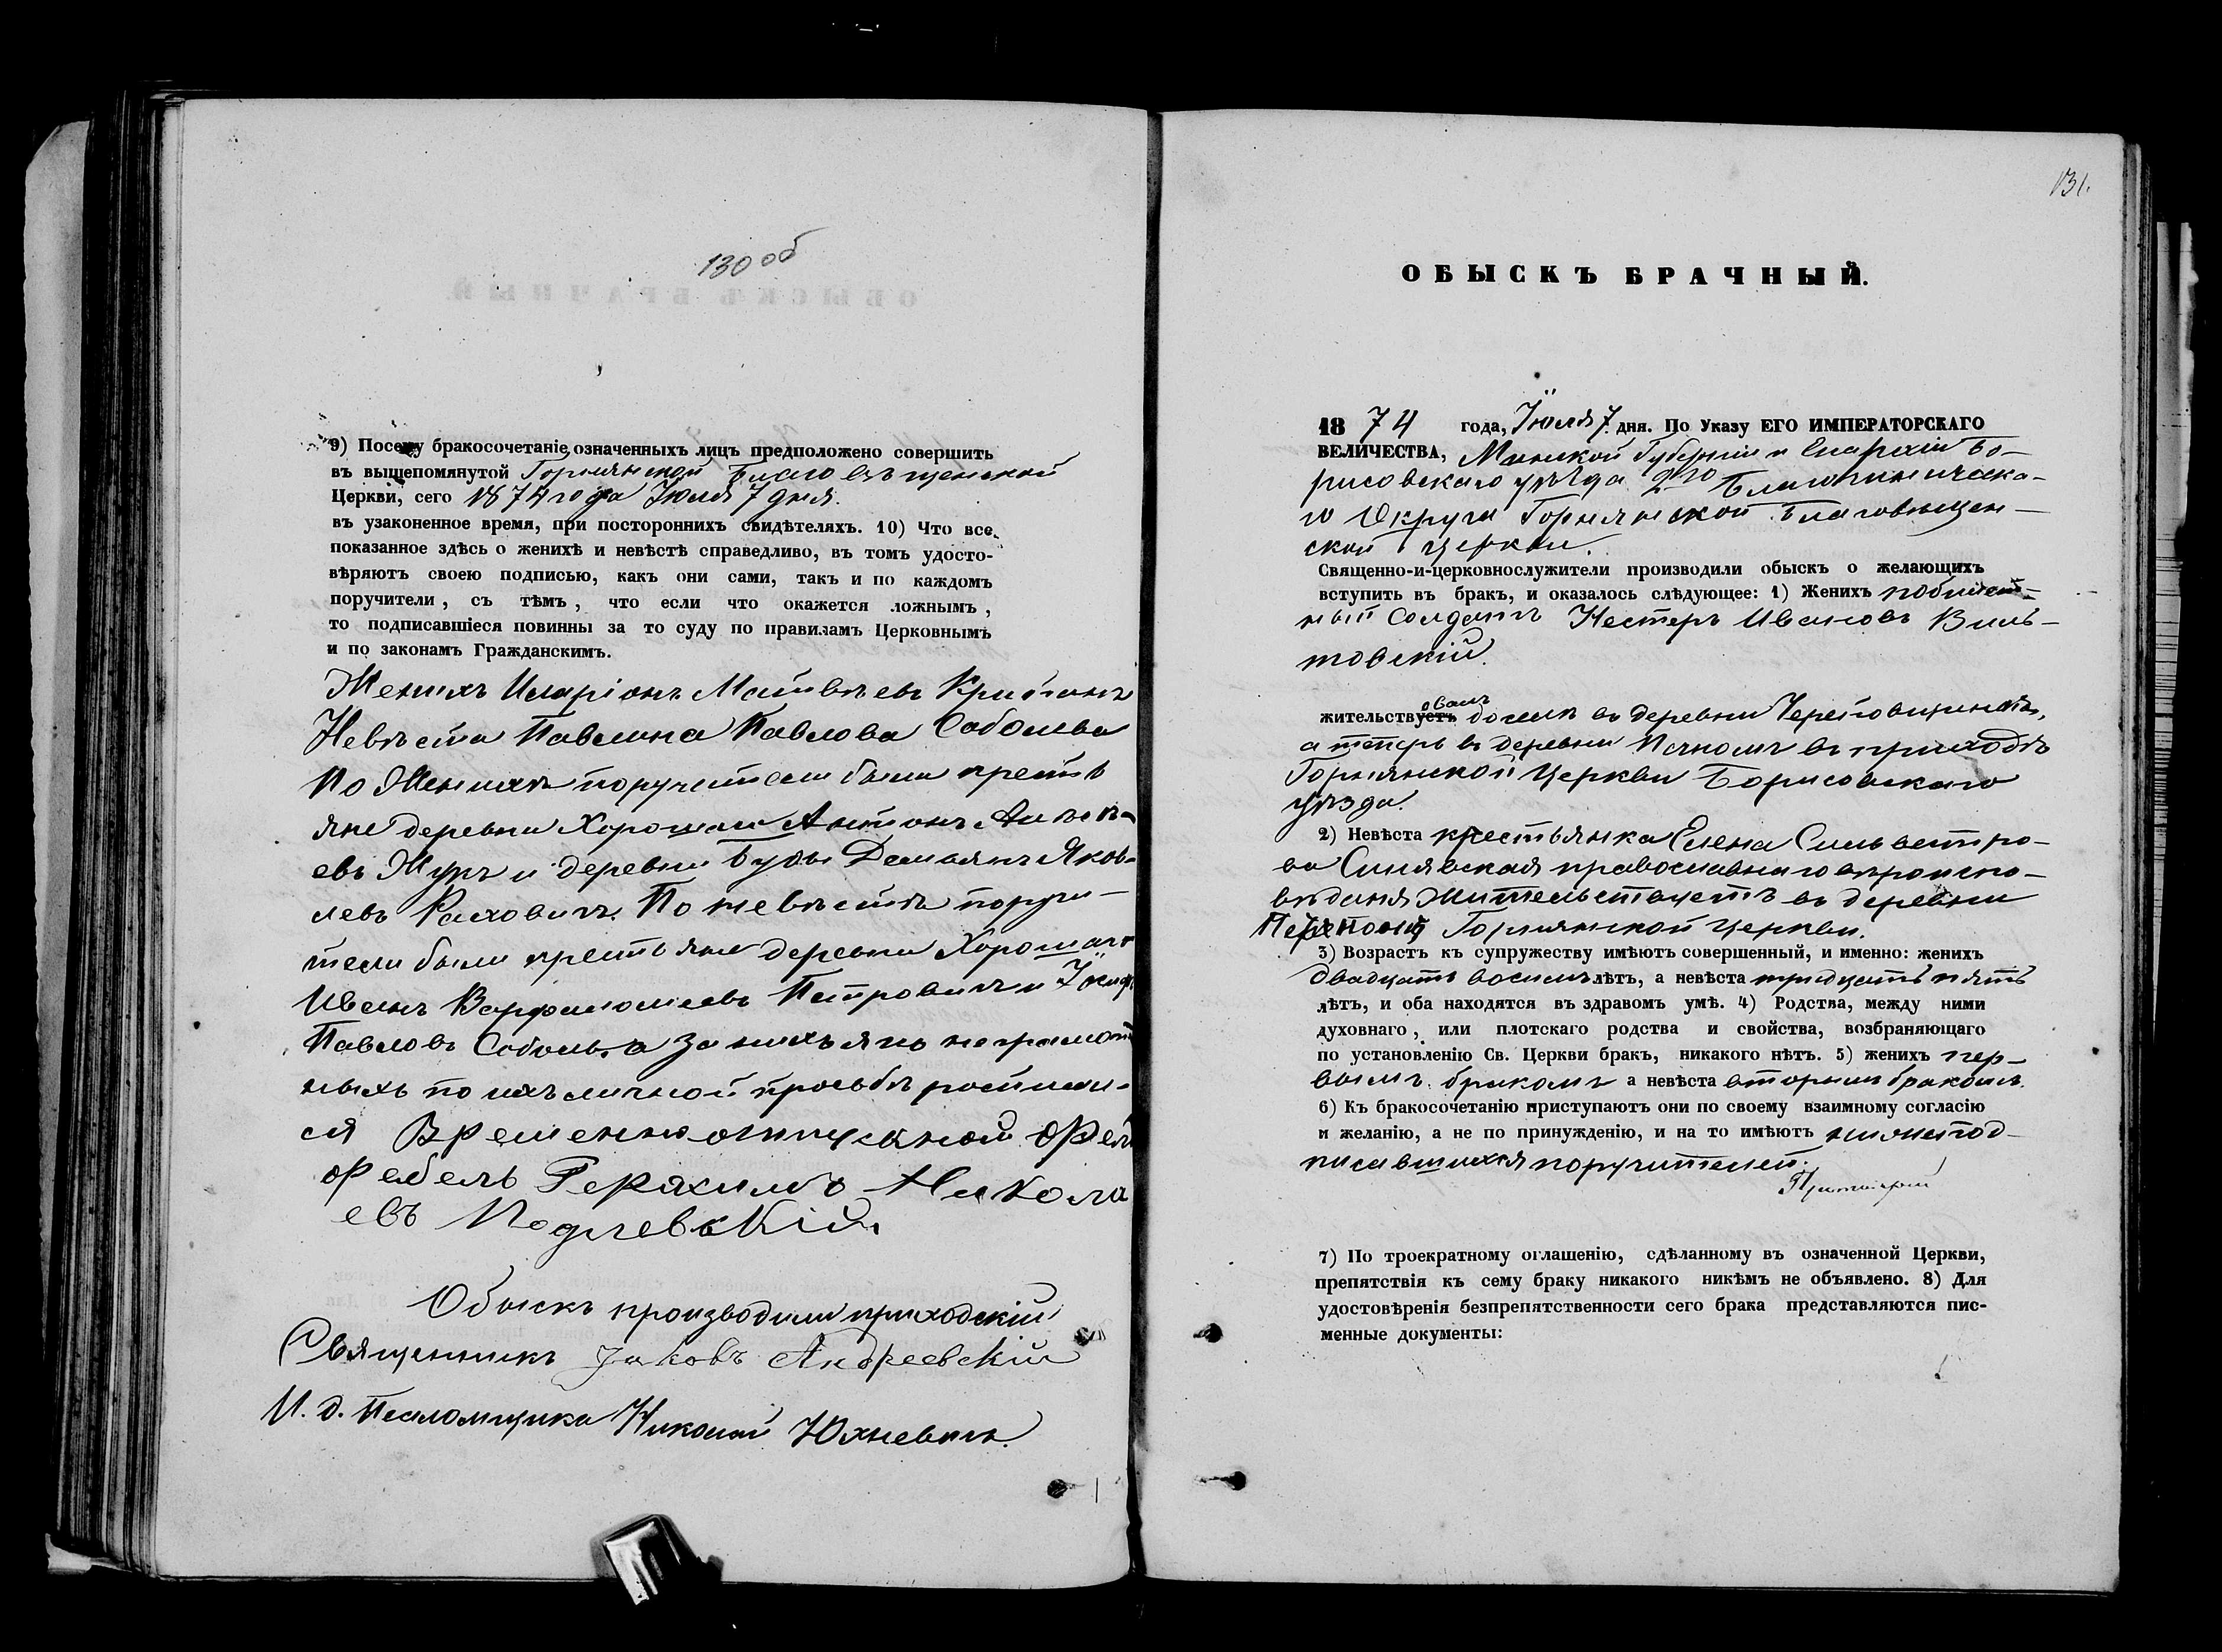 130 об
9) Посему бракосочетаніе означенныхъ лицъ предположено совершить
въ вышепомянутой Горнянской Благовѣщенской
Церкви, сего 1874 года Июля 7 дня.
въ узаконенное время, при постороннихъ свидѣтеляхъ. 10) Что все
показанное здѣсь о женихѣ и невѣстѣ справедливо, въ томъ удосто-
вѣряютъ своею подписью, какъ они сами, такъ и по каждомъ
поручители, съ тѣмъ, что если что окажется ложнымъ,
то подписавшіеся повинны за то суду по правиламъ Церковнымъ
и по законамъ Гражданскимъ.
Женихъ Иларіонъ Матвѣевъ
Невѣста Павлина Павлова
По Женихѣ поручители были кресть
яне деревни Антонъ
евъ Жукъ и деревни Буды Демьянъ Яков-
левъ Рахович. По невѣстѣ поручи-
тели были крестьяне деревни
Иванъ Варфаломеевъ Петровичъ и
Павловъ за нихъ яко неграмот
ныхъ по ихъ личной просьбѣ росписал-
ся Временно отпускной Фель
дфебель Никола
евъ Подлевскій
Обыскъ производили приходскій
Священникъ Іаковъ Андреевскій
И. д. Псаломщика Николай Юхневичъ.
131.
ОБЫСКЪ БРАЧНЫЙ.
1874 года, Июля 7 дня. По Указу ЕГО ИМПЕРАТОРСКАГО
ВЕЛИЧЕСТВА, Минской Губерніи и Епархіи Бо-
рисовскаго уѣзда 2го Благочинническа-
го Округа Горнянской Благовѣщен-
ской церкви.
Священно-и-церковнослужители производили обыскъ о желающихъ
вступить въ бракъ, и оказалось слѣдующее: 1) Женихъ
ный Солдатъ Нестеръ Ивановъ Виль-
товскій.
овалъ
жительствуетъ въ деревни
а теперь въ деревни въ приходѣ
Горнянской Церкви Борисовскаго
уѣзда.
2) Невѣста крестьянка Елена Сильвестро-
ва Синявская православнаго вѣроиспо-
вѣданія Жительствуетъ въ деревни
Горнянской церкви.
3) Возрастъ къ супружеству имѣютъ совершенный, и именно: женихъ
двадцать восемь лѣтъ, а невѣста тридцать пять
лѣтъ, и оба находятся въ здравомъ умѣ. 4) Родства, между ними
духовнаго, или плотскаго родства и свойства, возбраняющаго
по установленію Св. Церкви бракъ, никакого нѣтъ. 5) женихъ пер-
вымъ бракомъ а невѣста вторымъ бракомъ.
6) Къ бракосочетанію приступаютъ они по своему взаимному согласію
и желанію, а не по принужденію, и на то имѣютъ нижепод-
писавшихся поручителей.
7) По троекратному оглашенію, сдѣланному въ означенной Церкви,
препятствія къ сему браку никакого никѣмъ не объявлено. 8) Для
удостовѣренія безпрепятственности сего брака представляются пис-
менные документы: